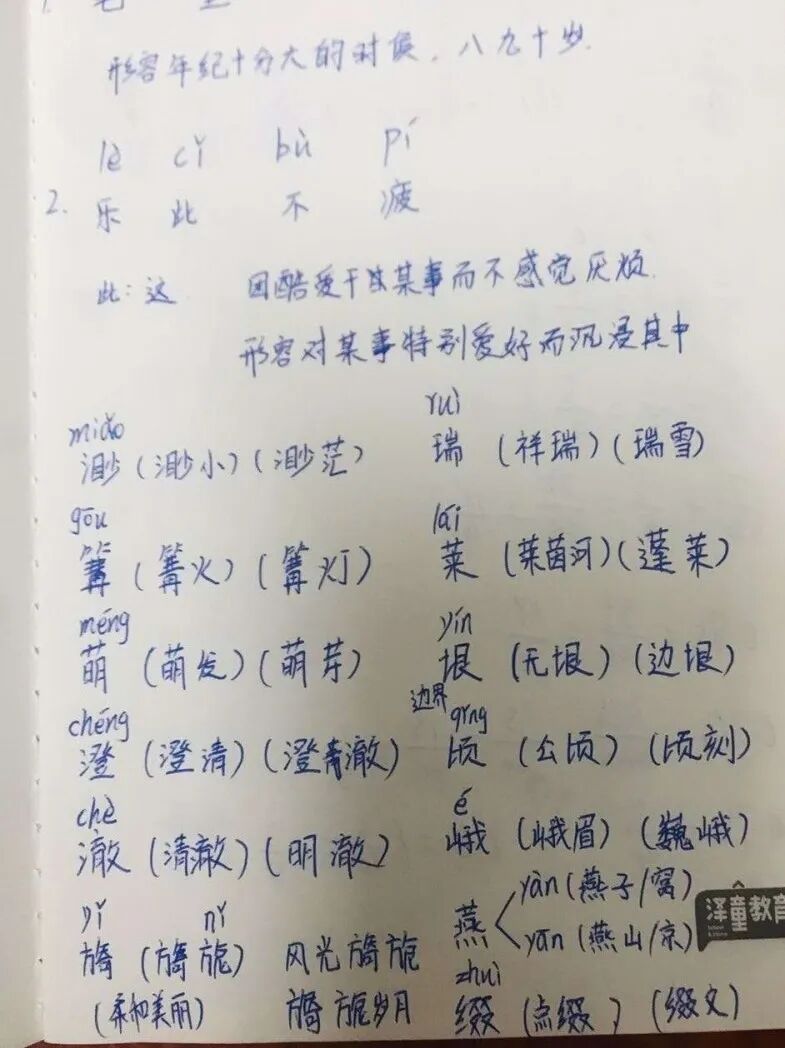 形容年纪十分大的时候，八九十岁.
lè cǐ bù pí
2. 乐 此 不 疲
此：这 因酷爱干某事而不感觉厌烦.
形容对某事特别爱好而沉浸其中
miǎo
渺（渺小）（渺茫）
gōu
篝（篝火）（篝灯）
méng
萌（萌发）（萌芽）
chéng
澄（澄清）（澄澈）
chè
澈（清澈）（明澈）
yǐ nǐ
旖（旖旎） 风光旖旎
（柔和美丽） 旖旎岁月
ruì
瑞（祥瑞）（瑞雪）
lái
莱（莱茵河）（蓬莱）
yín
垠（无垠）（边垠）
边界
qǐng
顷（公顷）（顷刻）
é
峨（峨眉）（巍峨）
燕 yàn（燕子/窝）
yān（燕山/京）
zhuì
缀（点缀）（缀文）
泽童教育